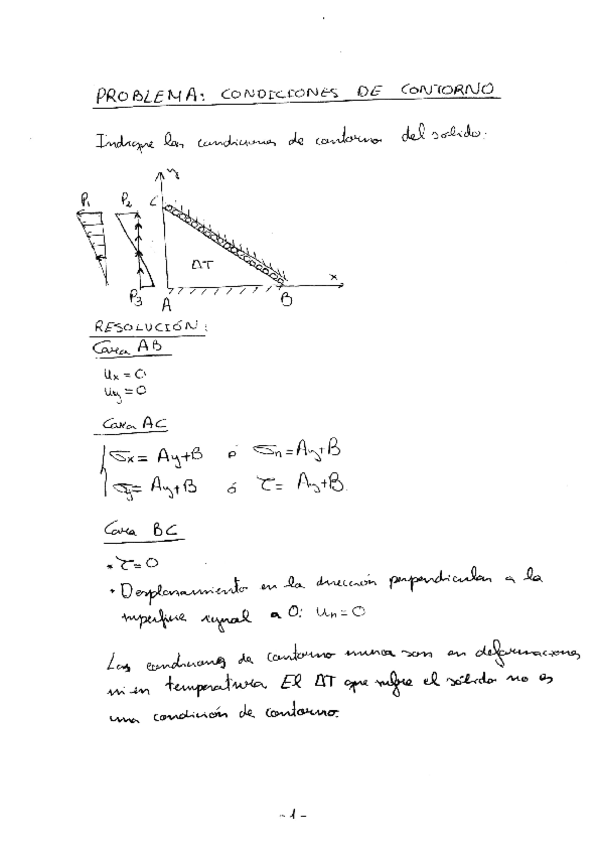 PROBLEMA: CONDICIONES DE CONTORNO
Indique las condiciones de contorno del sólido:
y
P1 P2 C
ΔT
x
P3 A B
RESOLUCIÓN:
Cara AB
ux = 0
uy = 0
Cara AC
σx = Ay+B ó σn = Ay+B
Ay+B ó τ = Ay+B.
Cara BC
• τ = 0
• Desplazamiento en la dirección perpendicular a la
superficie igual a 0: un = 0
Las condiciones de contorno nunca son en deformaciones
ni en temperatura. El ΔT que sufre el sólido no es
una condición de contorno.
- 1 -